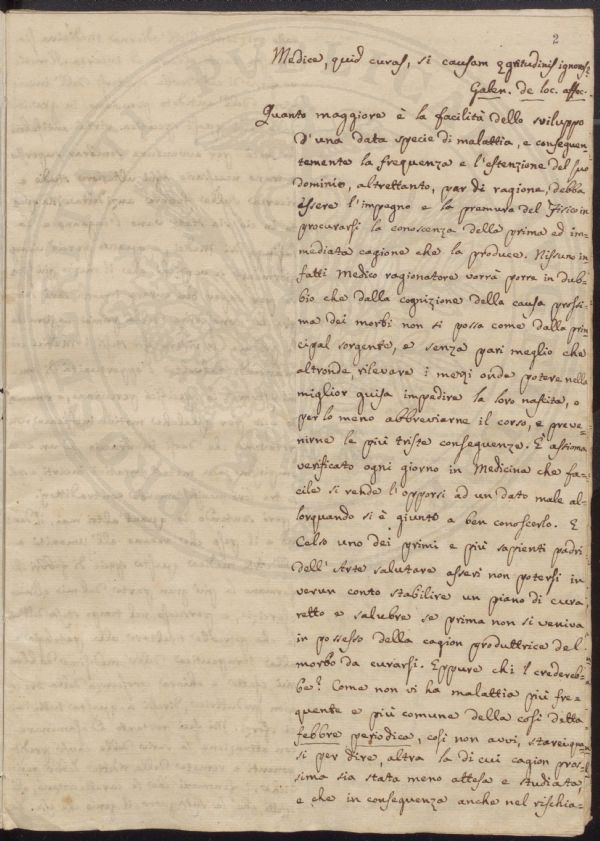 2
Medice, quid curas, si causam ęgritudinis ignoras?
Galen. de loc. affec.
Quanto maggiore è la facilità dello sviluppo
d'una data specie di malattia, e conseguen-
temente la frequenza e l'estenzione del suo
dominio, altrettanto, par di ragione, debba
essere l'impegno e la premura del Fisico in
procurarsi la conoscenza della prima ed im-
mediata cagione che la produce. Nissuno in-
fatti Medico ragionatore vorrà porre in dub-
bio che dalla cognizione della causa prossi-
ma dei morbi non si possa come dalla prin-
cipal sorgente, e senza pari meglio che
altronde, rilevare i mezzi onde potere nella
miglior guisa impedire la loro nascita, o
per lo meno abbreviarne il corso, e preve-
nirne le più triste conseguenze. È assioma
verificato ogni giorno in Medicina che fa-
cile si rende l'opporsi ad un dato male al-
lorquando si è giunto a ben conoscerlo. E
Celso uno dei primi e più sapienti padri
dell'Arte salutare asserì non potersi in
verun conto stabilire un piano di cura
retto e salubre se prima non si veniva
in possesso della cagion produttrice del
morbo da curarsi. Eppure chi 'l credereb-
be? Come non vi ha malattia più fre-
quente e più comune della così detta
febbre periodica, così non avvi, starei qua-
si per dire, altra la di cui cagion pros-
sima sia stata meno attesa e studiata,
e che in conseguenza anche nel rischia-